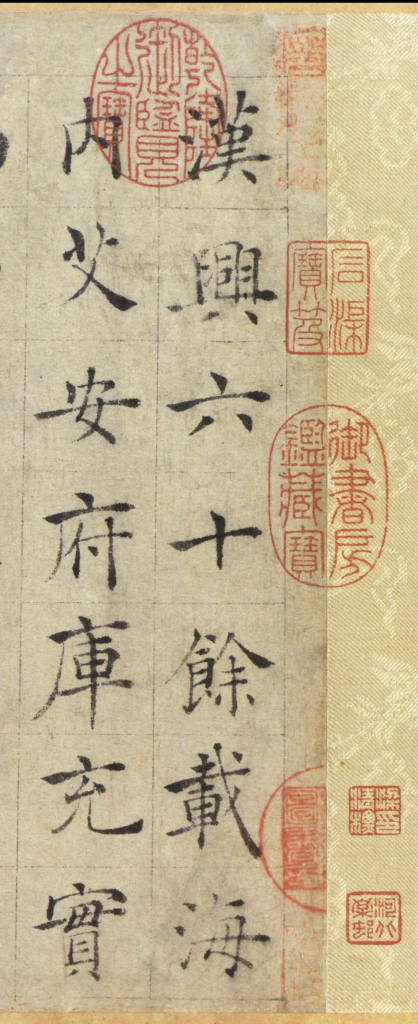 石渠
寶笈
御書房
鑑藏寶
河北
棠邨
漢興六十餘載海
內艾安府庫充實
乾隆
御覽
之寶